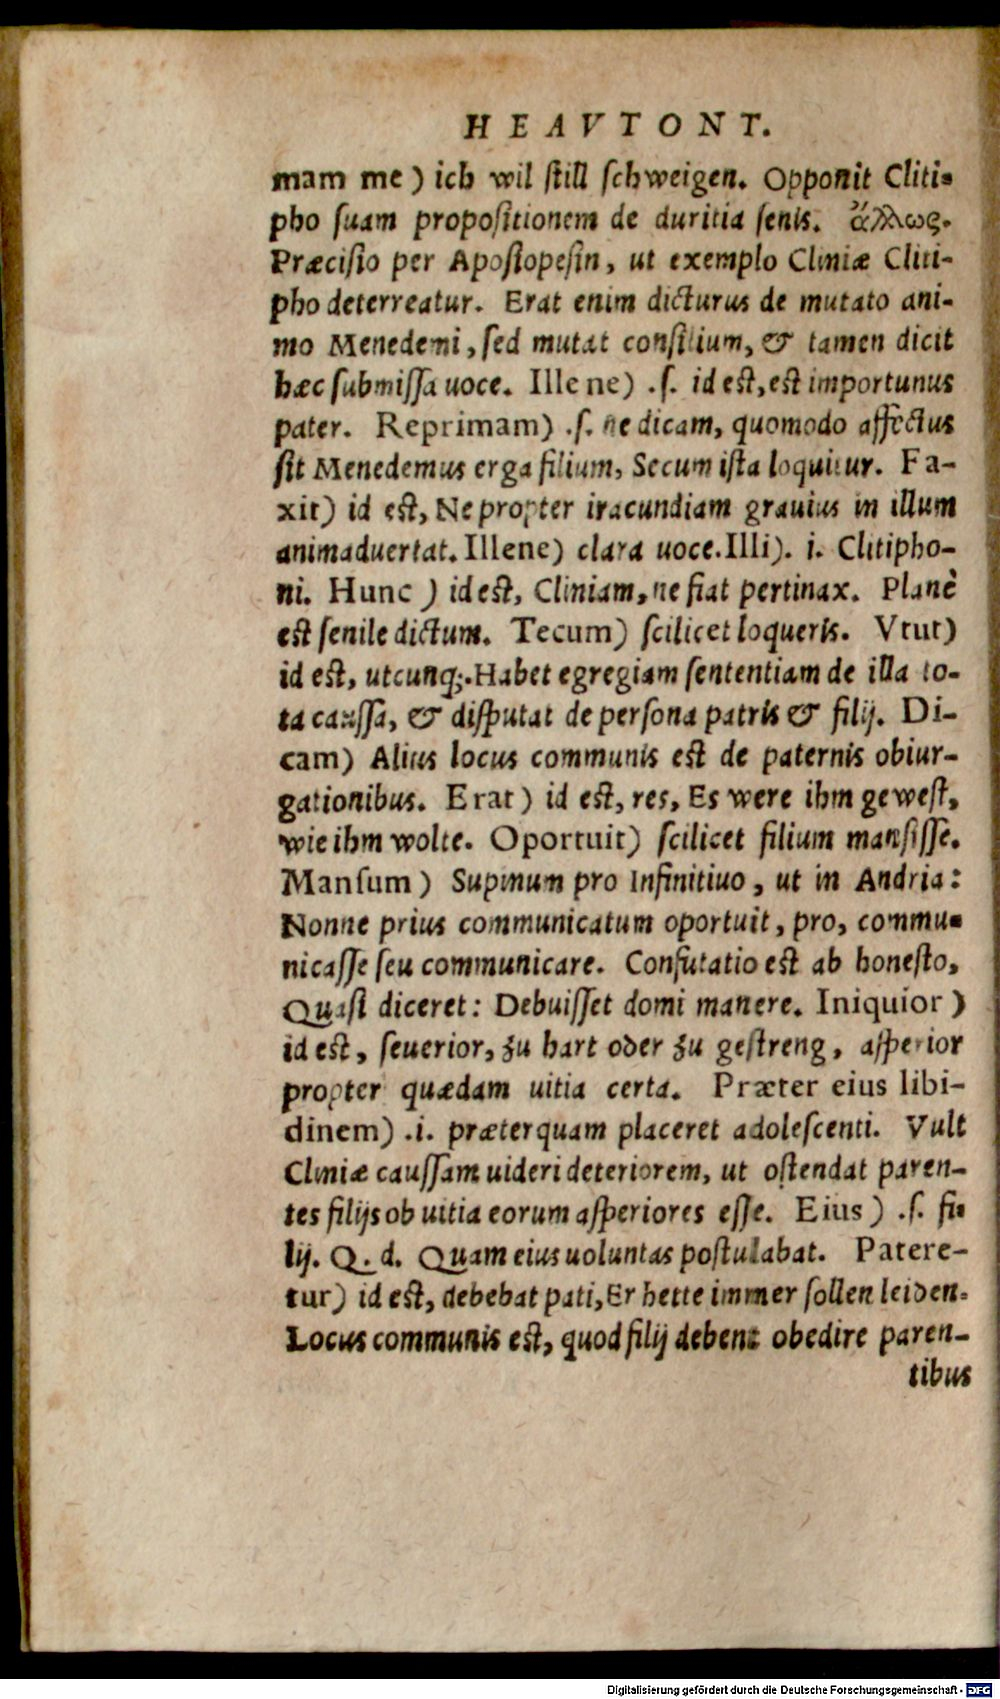 HEAVTONT.
mam me) ich wil ſtill ſchweigen. Opponit Cliti-
pho ſuam propoſitionem de duritia ſenis. ἄλλως.
Præciſio per Apoſiopeſin, ut exemplo Cliniæ Cliti-
pho deterreatur. Erat enim dicturus de mutato ani-
mo Menedemi, ſed mutat conſilium, & tamen dicit
hæc ſubmiſſa uoce. Ille ne) .ſ. id eſt, eſt importunus
pater. Reprimam) .ſ. ne dicam, quomodo affectus
ſit Menedemus erga filium, Secum iſta loquitur. Fa-
xit) id eſt, Ne propter iracundiam grauius in illum
animaduertat. Illene) clara uoce. Illi). i. Clitipho-
ni. Hunc) id eſt, Cliniam, ne fiat pertinax. Planè
eſt ſenile dictum. Tecum) ſcilicet loqueris. Vtut)
id eſt, utcunq;. Habet egregiam ſententiam de illa to-
ta cauſſa, & diſputat de perſona patris & filij. Di-
cam) Alius locus communis eſt de paternis obiur-
gationibus. Erat) id eſt, res, Es were ihm geweſt,
wie ihm wolte. Oportuit) ſcilicet filium manſiſſe.
Manſum) Supinum pro Infinitiuo, ut in Andria:
Nonne prius communicatum oportuit, pro, commu-
nicaſſe ſeu communicare. Confutatio eſt ab honeſto,
Quaſi diceret: Debuiſſet domi manere. Iniquior)
id eſt, ſeuerior, zu hart oder zu geſtreng, aſperior
propter quædam uitia certa. Præter eius libi-
dinem) .i. præterquam placeret adoleſcenti. Vult
Cliniæ cauſſam uideri deteriorem, ut oſtendat paren-
tes filijs ob uitia eorum aſperiores eſſe. Eius) .ſ. fi-
lij. Q. d. Quam eius uoluntas poſtulabat. Patere-
tur) id eſt, debebat pati, Er hette immer ſollen leiden.
Locus communis eſt, quod filij debent obedire paren-
tibus
Digitalisierung gefördert durch die Deutsche Forschungsgemeinschaft - DFG